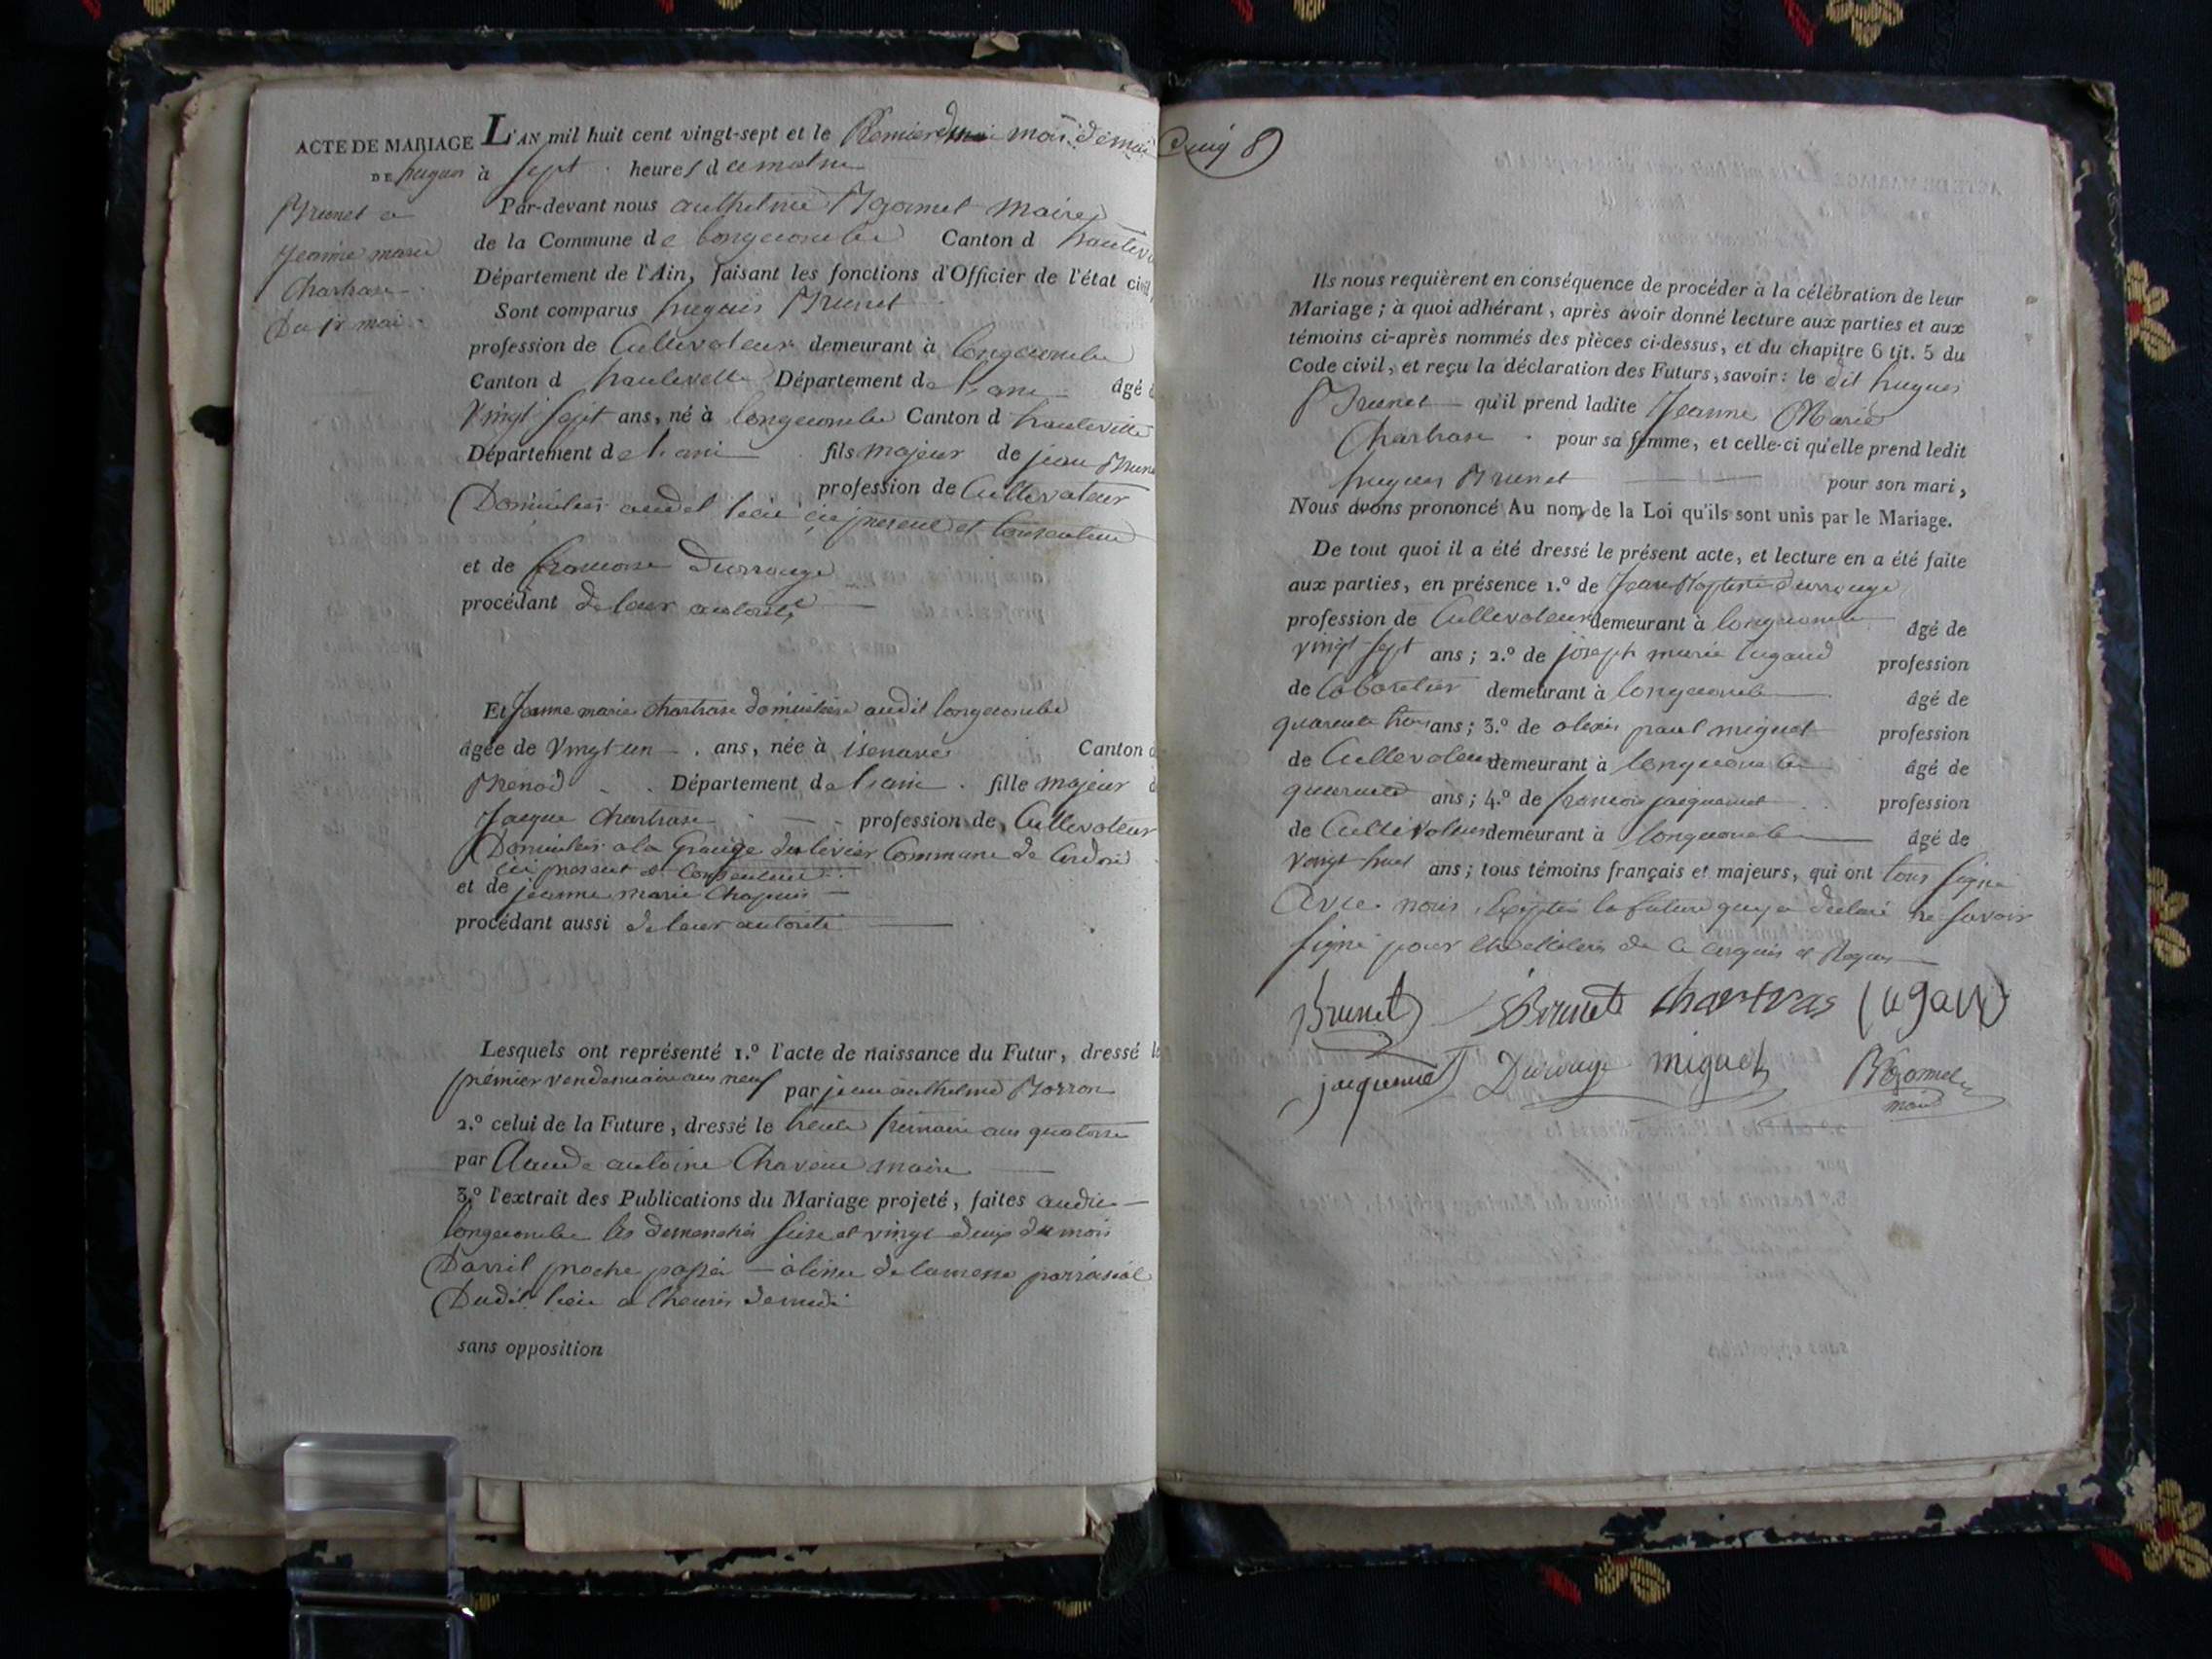 ACTE DE MARIAGE
DE hugues
Brunet et
Jeanne marie
Chartrase
Du 1r mai
L'AN mil huit cent vingt-sept et le Premier mois de mai
à sept heures du matin
Par-devant nous authelme Bgomet Maire
de la Commune de longecombe Canton d hautev
Département de l'Ain, faisant les fonctions d'Officier de l'état civil
Sont comparus hugues Brunet
profession de Cultivateur demeurant à longecombe
Canton d hauteville Département de l'ain âgé d
Vingt sept ans, né à longecombe Canton d hauteville
Département de l'ain fils majeur de jean Brune
profession de Cultivateur
Domicilier audit lieu ici présent et Consentent
et de francoise Durrouge
procédant de leur autorité
Et Jeanne marie Chartrase domicilière audit longecombe
âgée de Vingt un ans, née à isenave Canton d
Brenod Département de l'ain fille majeur d
Jacque Chartrase profession de Cultivateur
Domicilier a la Grange du livier Commune de Cordon
ici present et Consentent
et de jeanne marie Chapuis
procédant aussi de leur autorité
Lesquels ont représenté 1.º l'acte de naissance du Futur, dressé le
prémier vendemiaire an neuf par jean authelme Borron
2.º celui de la Future, dressé le trente frimaire an quatorse
par Claude antoine Chavent maire
3.º l'extrait des Publications du Mariage projeté, faites audit
longecombe les demenches quise et vingt deux du mois
D'avril proche passé a l'issue de la messe parroisial
Dudit lieu a lheures de midi
sans opposition
8
Ils nous requièrent en conséquence de procéder à la célébration de leur
Mariage ; à quoi adhérant, après avoir donné lecture aux parties et aux
témoins ci-après nommés des pièces ci-dessus, et du chapitre 6 tit. 5 du
Code civil, et reçu la déclaration des Futurs, savoir : le dit hugues
Brunet qu'il prend ladite Jeanne Marie
Chartrase pour sa femme, et celle-ci qu'elle prend ledit
hugues Brunet pour son mari,
Nous avons prononcé Au nom de la Loi qu'ils sont unis par le Mariage.
De tout quoi il a été dressé le présent acte, et lecture en a été faite
aux parties, en présence 1.º de Jean Baptiste Durrouge
profession de Cultivateur demeurant à longecombe âgé de
vingt sept ans ; 2.º de joseph marie lugand profession
de Cabaretier demeurant à longecombe âgé de
quarente trois ans ; 3.º de alexis paul miguet profession
de Cultivateur demeurant à longecombe âgé de
quarente ans ; 4.º de francois jacquemet profession
de Cultivateur demeurant à longecombe âgé de
vingt huit ans ; tous témoins français et majeurs, qui ont tous signé
Avec nous Exceptés la future qui a déclaré ne savoir
signé pour de ce enquis et Requis
Brunet Brunet chartras lugand
jacquemet Durouge miguet Bgomet
maire